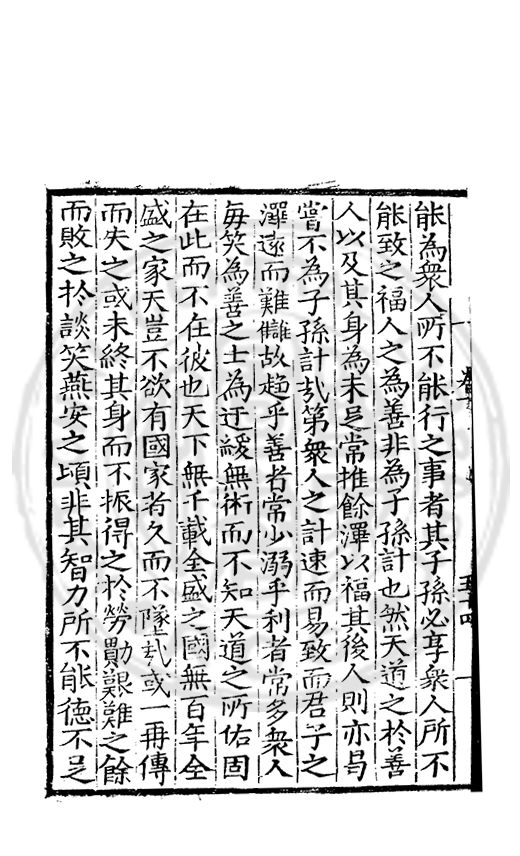 能為衆人所不能行之事者其子孫必享衆人所不
能致之福人之為善非為子孫計也然天道之於善
人以及其身為未足常推餘澤以福其後人則亦曷
嘗不為子孫計哉第衆人之計速而易致而君子之
澤遠而難讎故趨乎善者常少溺乎利者常多衆人
每笑為善之士為迂緩無術而不知天道之所佑固
在此而不在彼也天下無千載全盛之國無百年全
盛之家天豈不欲有國家者久而不墜哉或一再傳
而失之或未終其身而不振得之於勞勩艱難之餘
而敗之於談笑燕安之頃非其智力所不能德不足
五十四